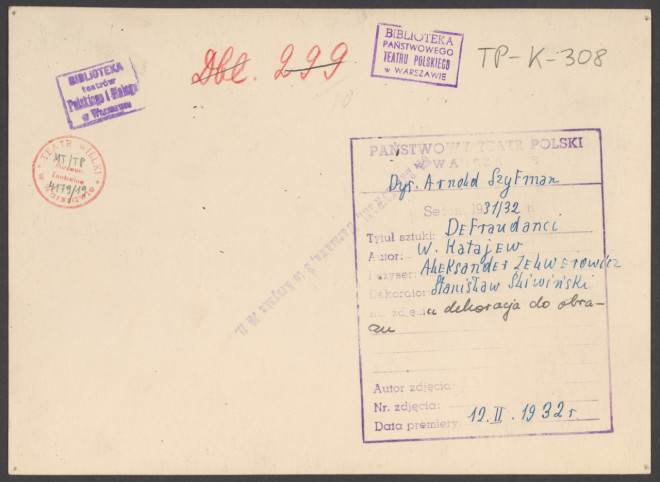 Dbl. 299
BIBLIOTEKA
PAŃSTWOWEGO
TEATRU POLSKIEGO
w WARSZAWIE
TP-K-308
BIBLIOTEKA
teatrów
Polskiego i Małego
w Warszawie
TEATR WIELKI
MT/TP
4179/19
PAŃSTWOWY TEATR POLSKI
W WARSZAWIE
Dyr. Arnold Szyfman
Sezon 1931/32 r.
Tytuł sztuki: Defraudanci
Autor: W. Katajew
Reżyser: Aleksander Zelwerowicz
Dekorator: Stanisław Śliwiński
na zdjęciu dekoracja do obra-
zu
Autor zdjęcia:
Nr. zdjęcia:
Data premiery: 12. II. 1932 r.